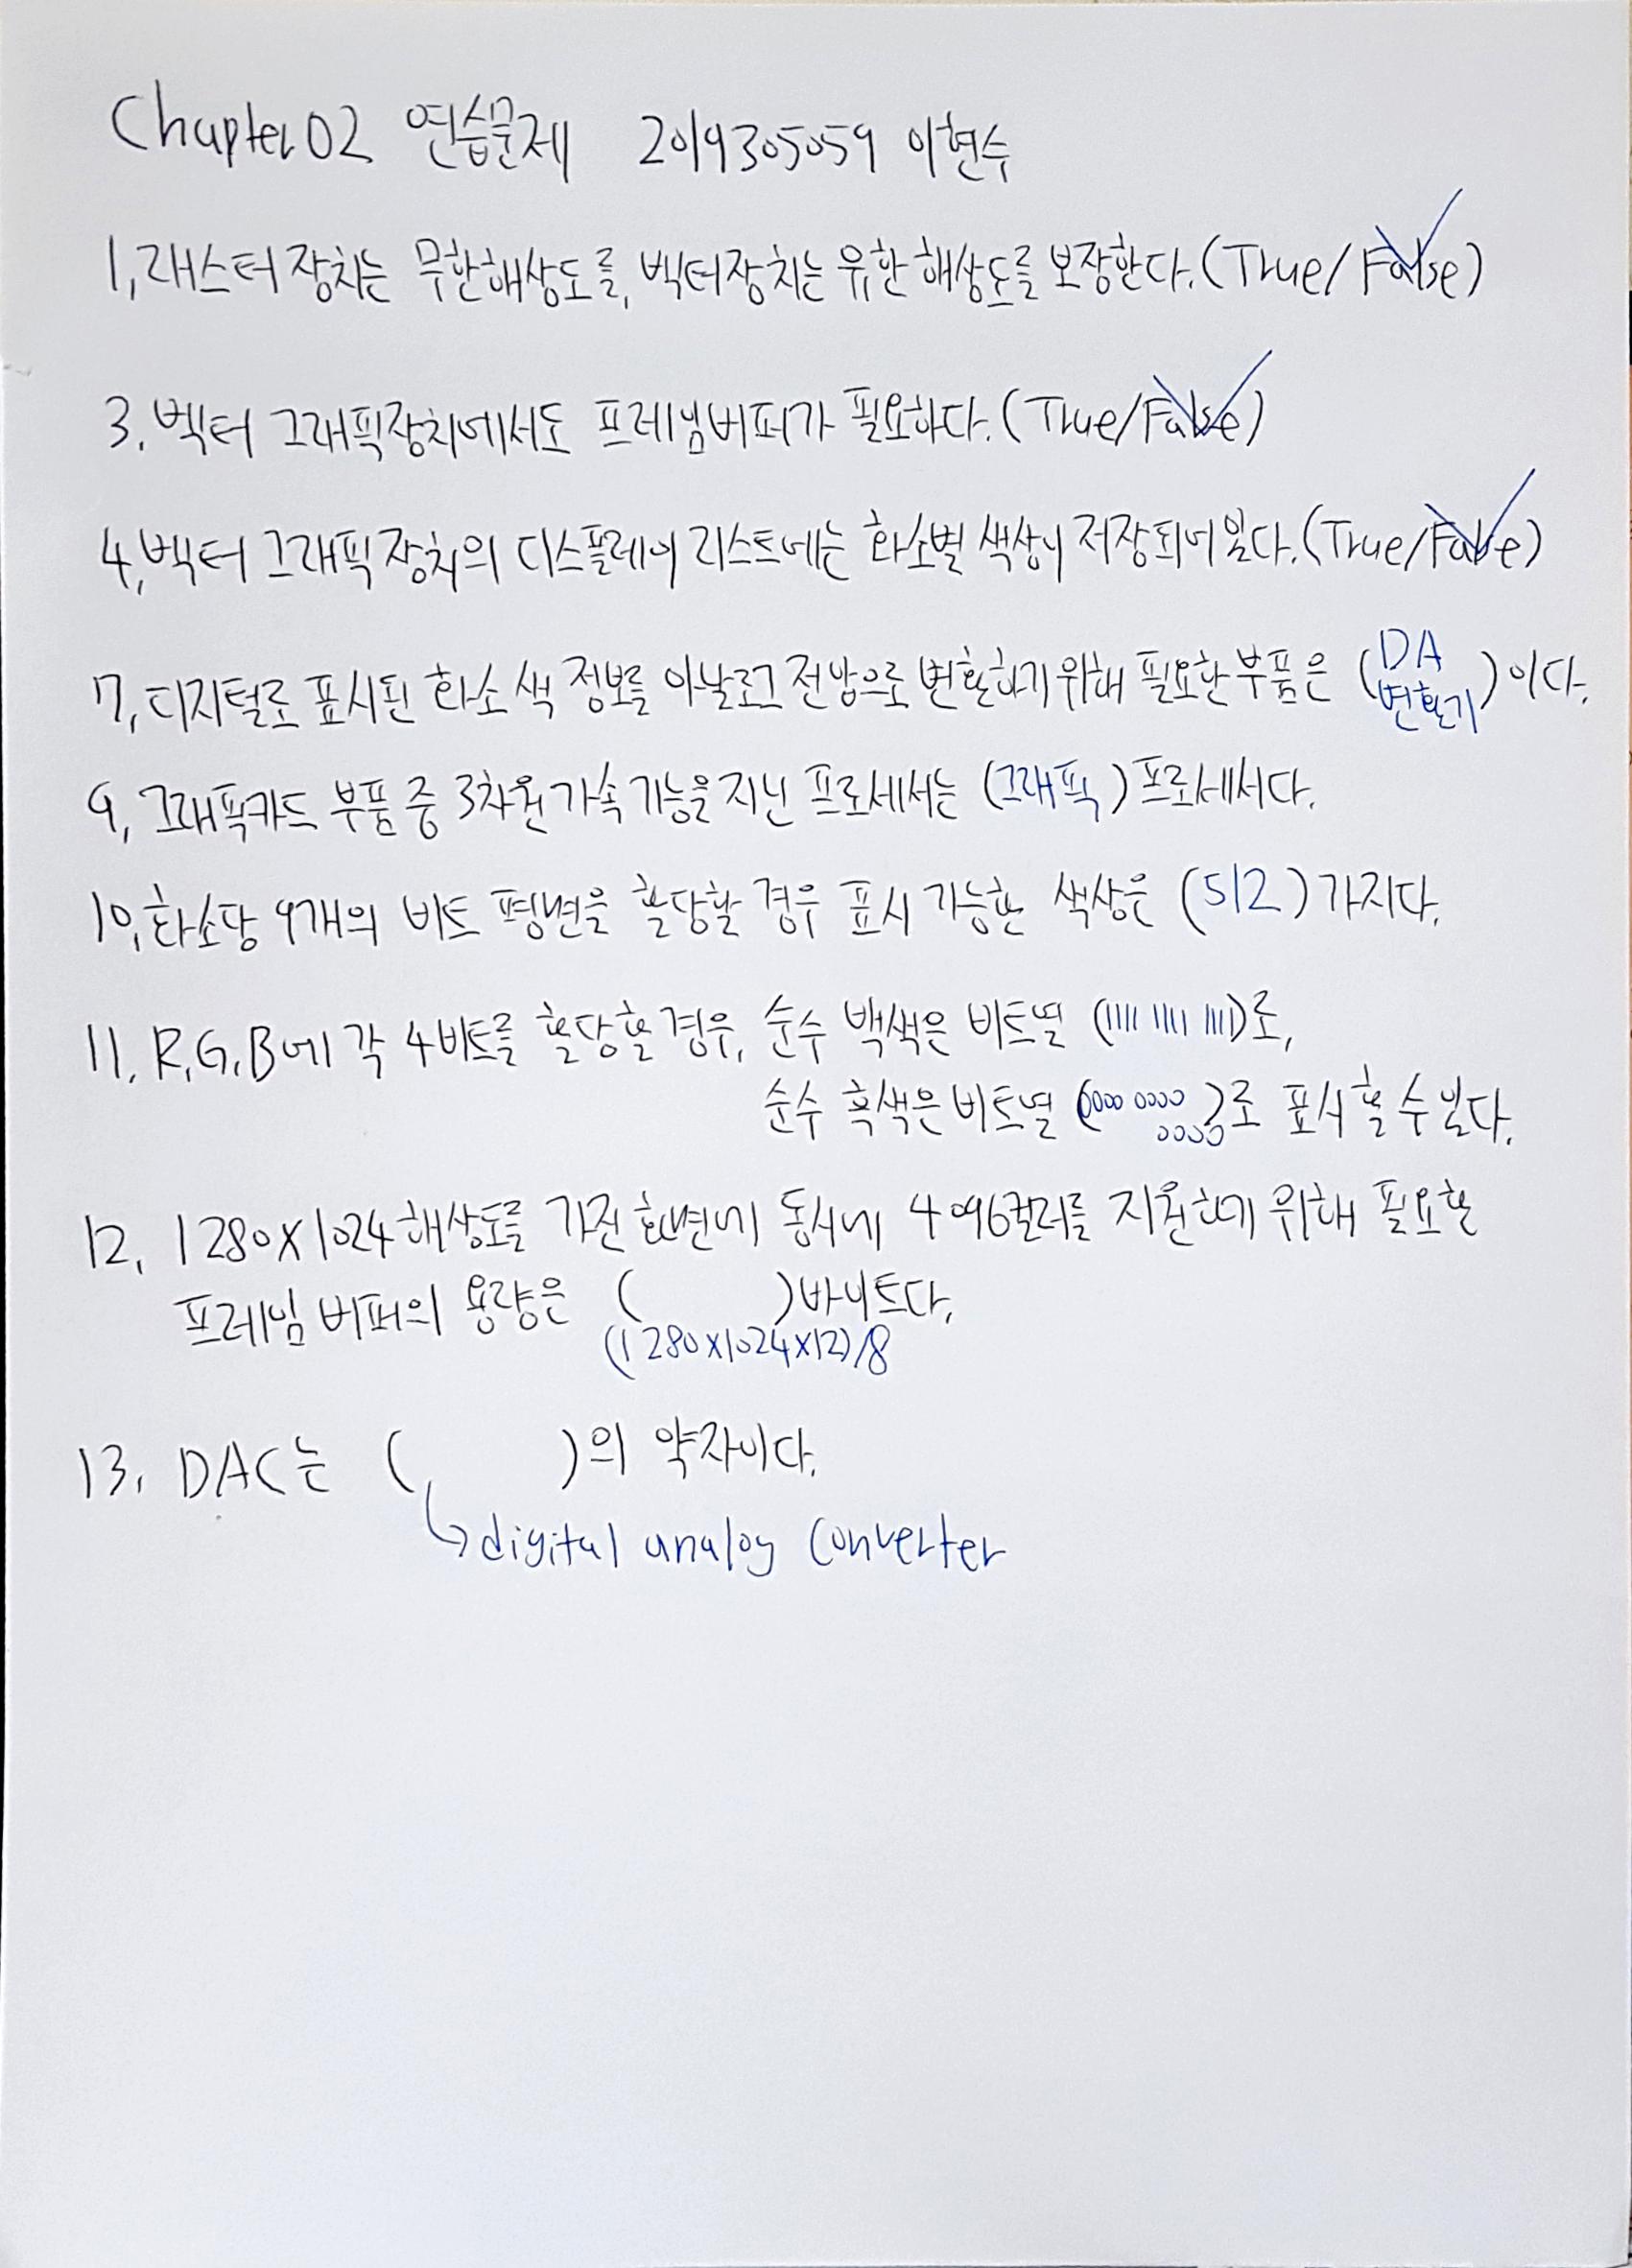 Chapter 02 연습문제 2019305059 이현수
1, 래스터 장치는 무한해상도를, 벡터장치는 유한 해상도를 보장한다. (True/False)
3. 벡터 그래픽장치에서도 프레임버퍼가 필요하다. (True/False)
4, 벡터 그래픽 장치의 디스플레이 리스트에는 화소별 색상이 저장되어 있다. (True/False)
7, 디지털로 표시된 화소 색 정보를 아날로그 전압으로 변환하기 위해 필요한 부품은 (DA 변환기)이다.
9, 그래픽카드 부품 중 3차원 가속 기능을 지닌 프로세서는 (그래픽) 프로세서다.
10, 화소당 9개의 비트 평면을 할당할 경우 표시 가능한 색상은 (512)가지다.
11. R,G,B에 각 4비트를 할당할 경우, 순수 백색은 비트열 (1111 1111 1111)로,
순수 흑색은 비트열 (0000 0000 0000)로 표시할 수 있다.
12, 1280x1024 해상도를 가진 화면에 동시에 4096컬러를 지원하기 위해 필요한
프레임 버퍼의 용량은 ( )바이트다.
(1280x1024x12)/8
13, DAC는 ( )의 약자이다.
↳ digital analog converter